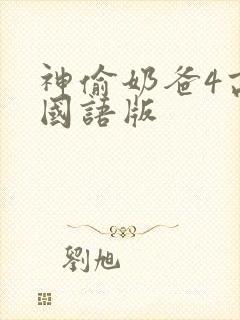 神偷奶爸4高
國語版
劉旭